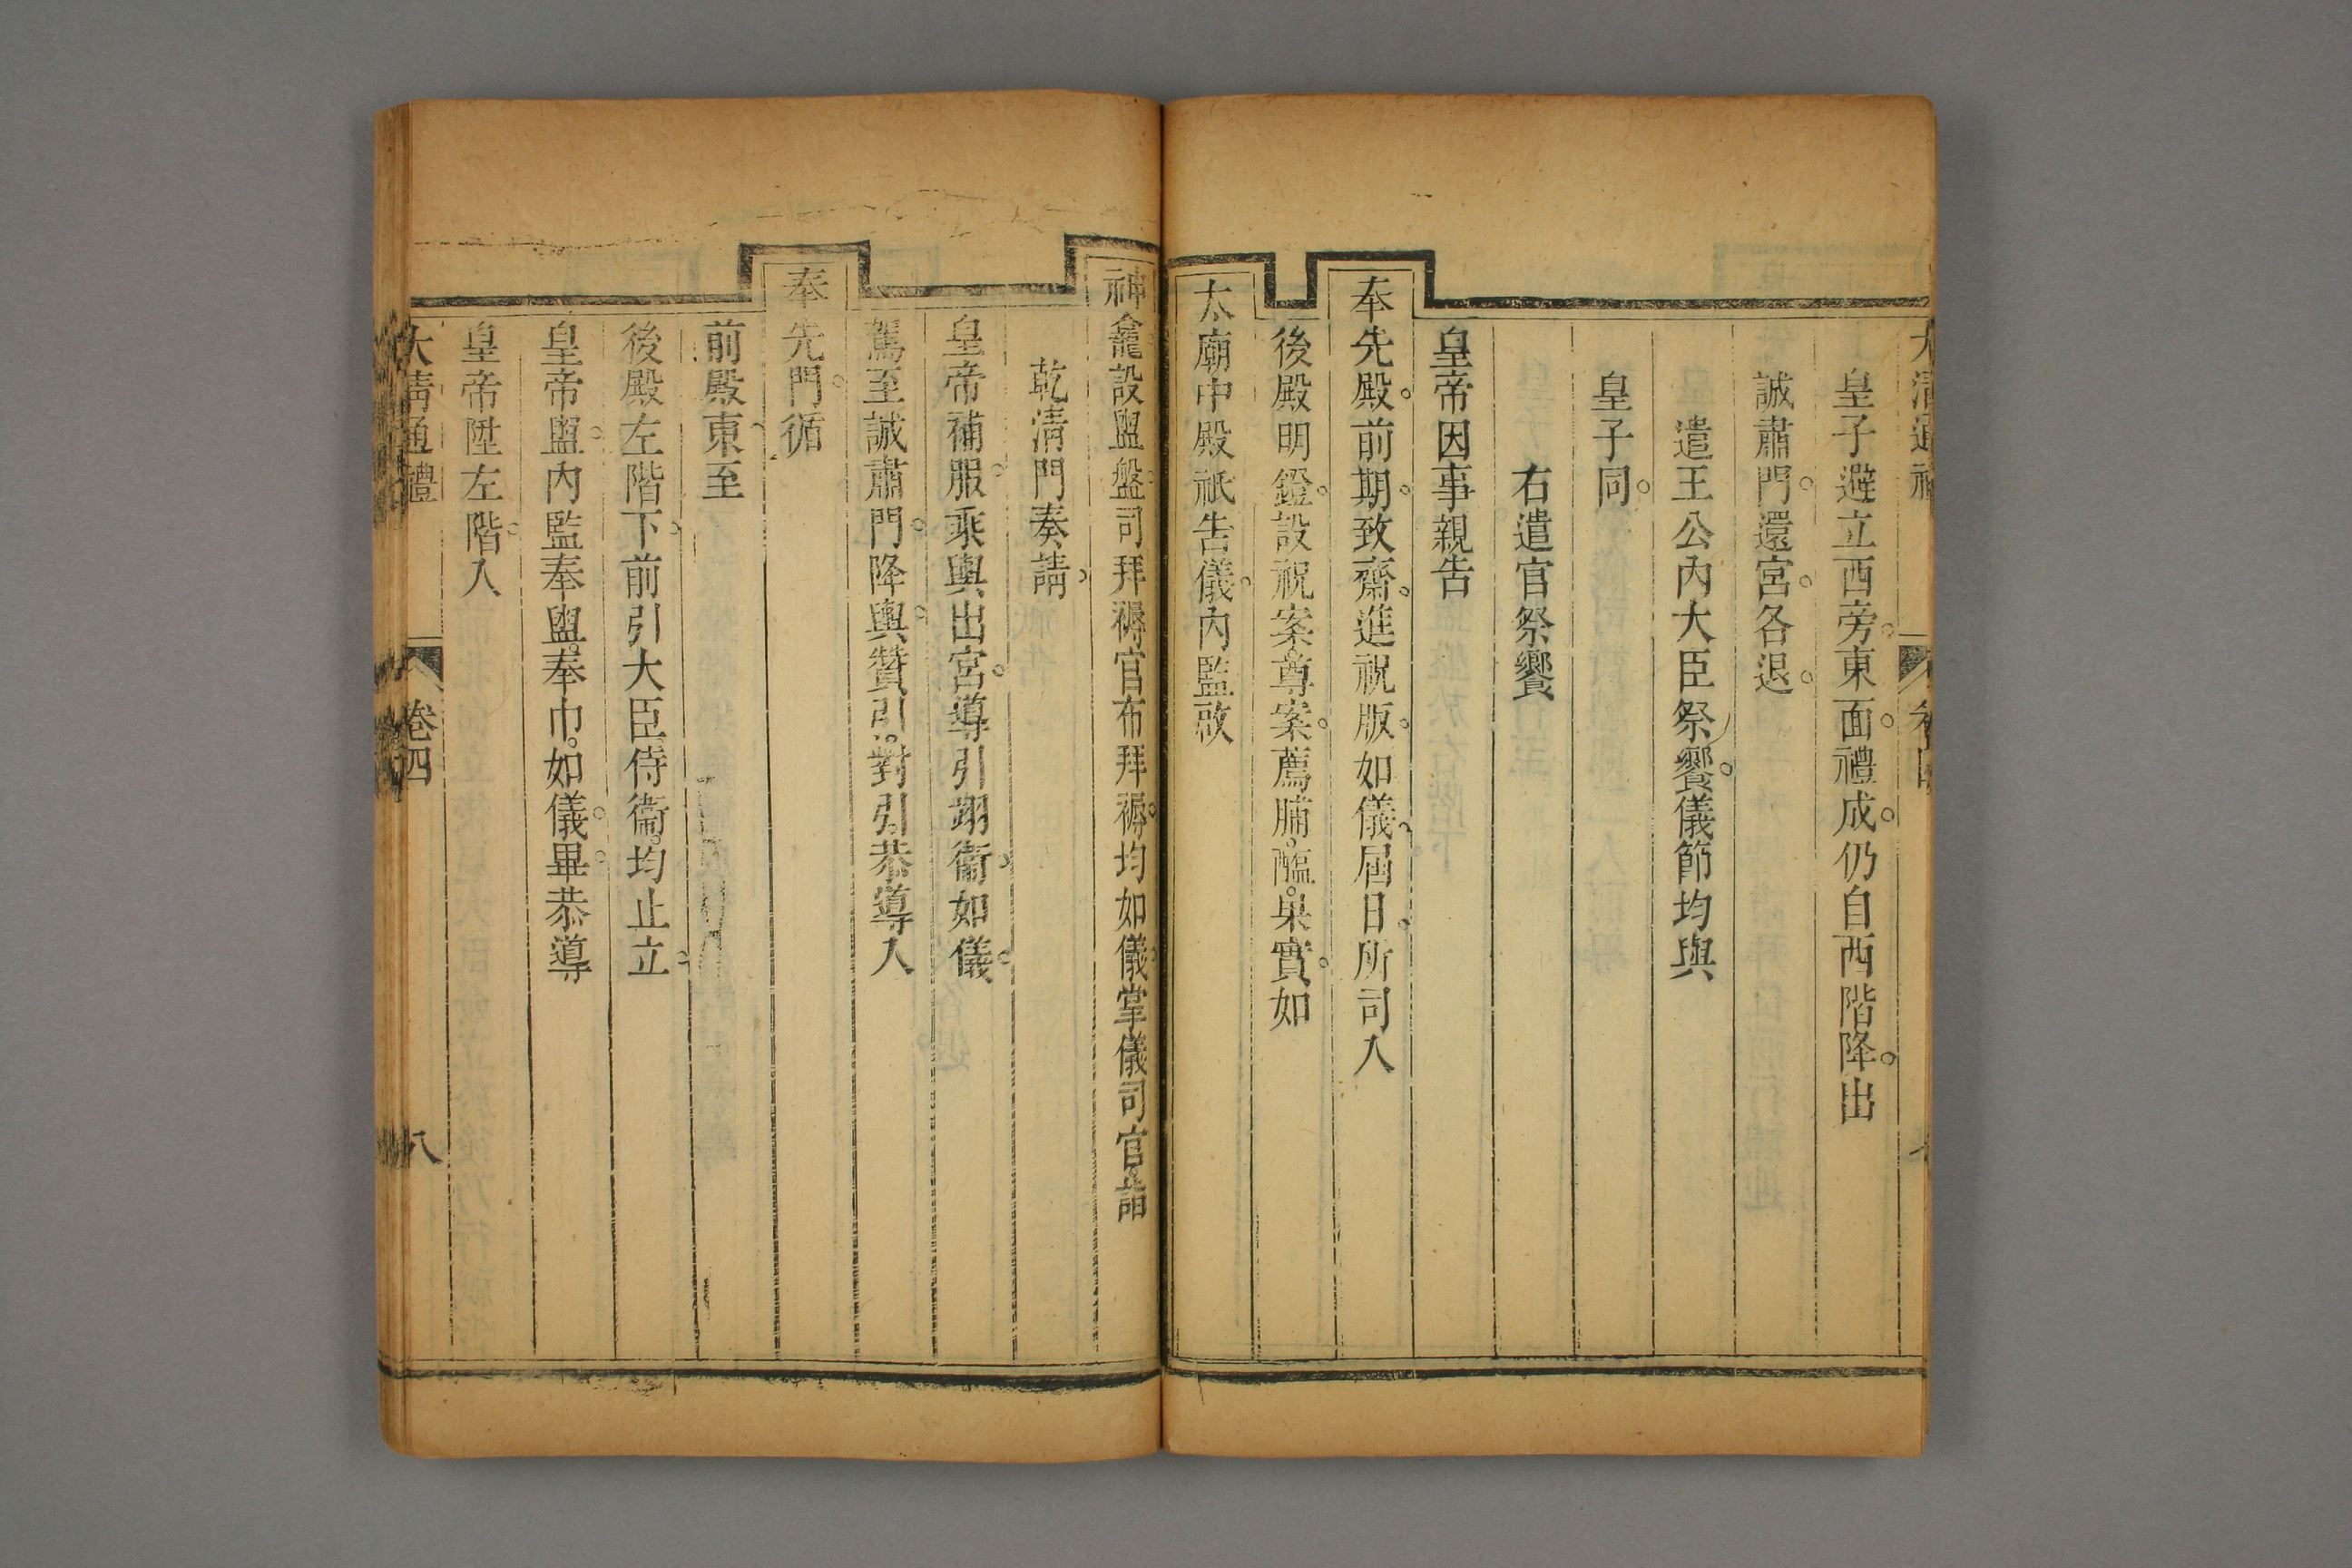 皇子避立西旁東面禮成仍自西階降出
誠肅門還宮各退
遣王公內大臣祭饗儀節均與
皇子同
右遣官祭饗
皇帝因事親告
奉先殿前期致齋進祝版如儀屆日所司入
後殿明鐙設祝案尊案薦脯醢果實如
太廟中殿祗告儀內監啟
神龕設盥盤司拜褥官布拜褥均如儀掌儀司官詣
乾淸門奏請
皇帝補服乘輿出宮導引翊衞如儀
駕至誠肅門降輿贊引對引恭導入
奉先門循
前殿東至
後殿左階下前引大臣侍衞均止立
皇帝盥內監奉盥奉巾如儀畢恭導
皇帝陞左階入
大淸通禮 卷四 八